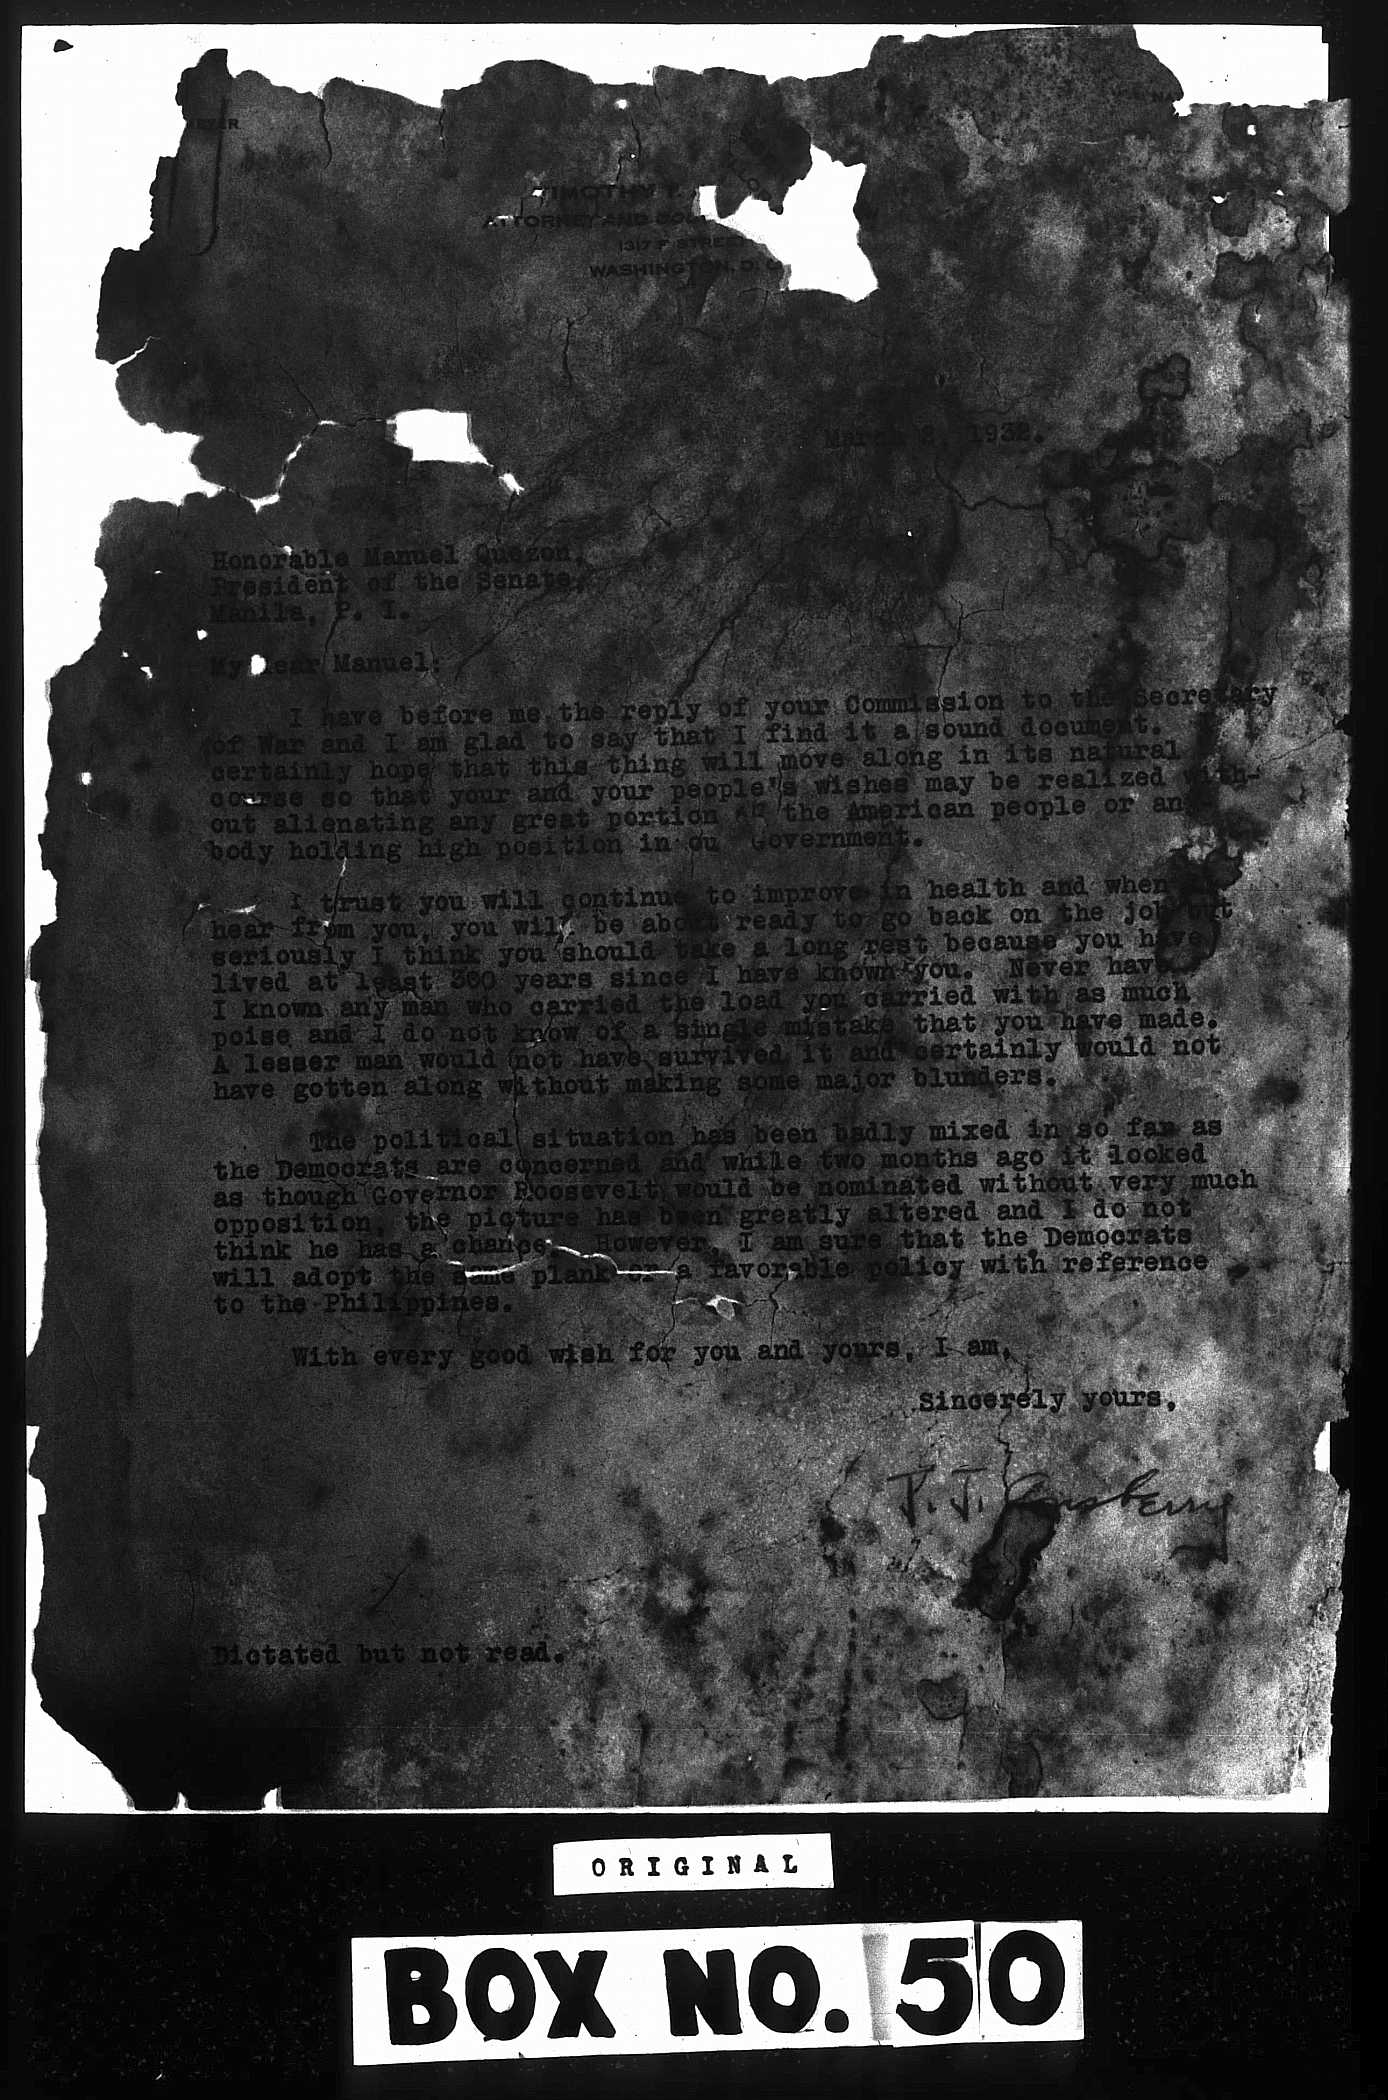 TIMOTHY T.
ATTORNEY AND COU
1317 F STREET
WASHINGTON, D. C.
March 2, 1932.
Honorable Manuel Quezon,
President of the Senate,
Manila, P. I.
My dear Manuel:
I have before me the reply of your Commission to the Secretary
of War and I am glad to say that I find it a sound document.
certainly hope that this thing will move along in its natural
course so that your and your people's wishes may be realized with-
out alienating any great portion of the American people or any
body holding high position in ou Government.
I trust you will continue to improve in health and when
hear from you, you will be about ready to go back on the job but
seriously I think you should take a long rest because you have
lived at least 300 years since I have known you. Never have
I known any man who carried the load you carried with as much
poise and I do not know of a single mistake that you have made.
A lesser man would not have survived it and certainly would not
have gotten along without making some major blunders.
The political situation has been badly mixed in so far as
the Democrats are concerned and while two months ago it looked
as though Governor Roosevelt would be nominated without very much
opposition, the picture has been greatly altered and I do not
think he has a chance. However, I am sure that the Democrats
will adopt the same plank or a favorable policy with reference
to the Philippines.
With every good wish for you and yours, I am,
Sincerely yours,
T. J. Ansberry
Dictated but not read.
ORIGINAL
BOX NO. 50